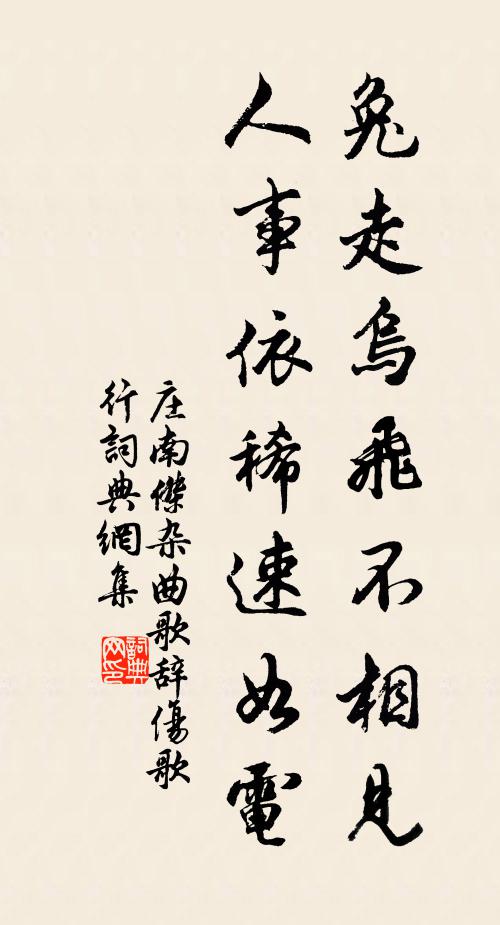 兔走烏飛不相見
人事依稀速如電
庄南傑杂曲歌辞傷歌
行詞典網集
詞典網印